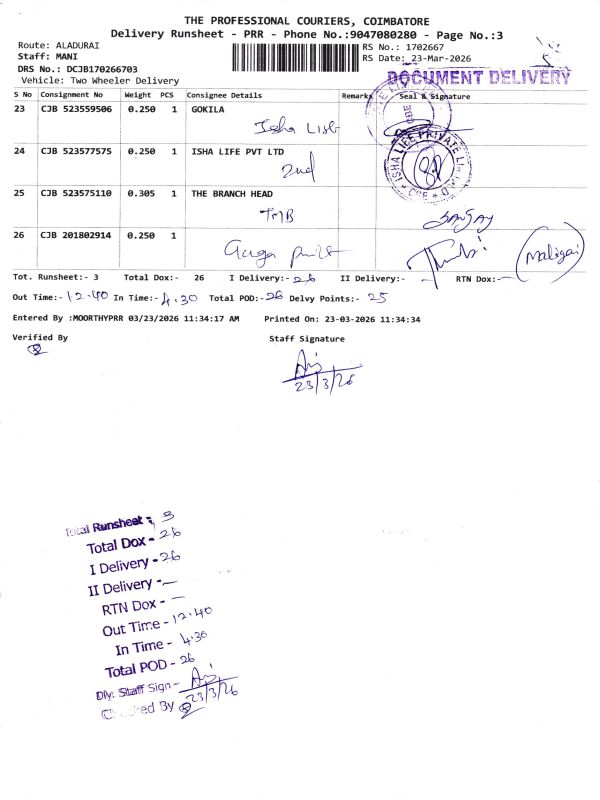 THE PROFESSIONAL COURIERS, COIMBATORE
Delivery Runsheet - PRR - Phone No.:9047080280 - Page No.:3
Route: ALADURAI
Staff: MANI
DRS No.: DCJB170266703
Vehicle: Two Wheeler Delivery
RS No.: 1702667
RS Date: 23-Mar-2026
DOCUMENT DELIVERY
S No Consignment No Weight PCS Consignee Details Remarks Seal & Signature
23 CJB 523559506 0.250 1 GOKILA
Isha
CBE
24 CJB 523577575 0.250 1 ISHA LIFE PVT LTD
2nd
ISHA LIFE PRIVATE LTD
CBE
25 CJB 523575110 0.305 1 THE BRANCH HEAD
TMB
SANJAY
26 CJB 201802914 0.250 1
(Maligai)
Tot. Runsheet:- 3 Total Dox:- 26 I Delivery:- 26 II Delivery:- - RTN Dox:- -
Out Time:- 12.40 In Time:- 4.30 Total POD:- 26 Delvy Points:- 25
Entered By :MOORTHYPRR 03/23/2026 11:34:17 AM Printed On: 23-03-2026 11:34:34
Verified By Staff Signature
23/3/26
Total Runsheet - 3
Total Dox - 26
I Delivery - 26
II Delivery - -
RTN Dox - -
Out Time - 12.40
In Time - 4.30
Total POD - 26
Dly. Staff Sign -
23/3/26
Checked By